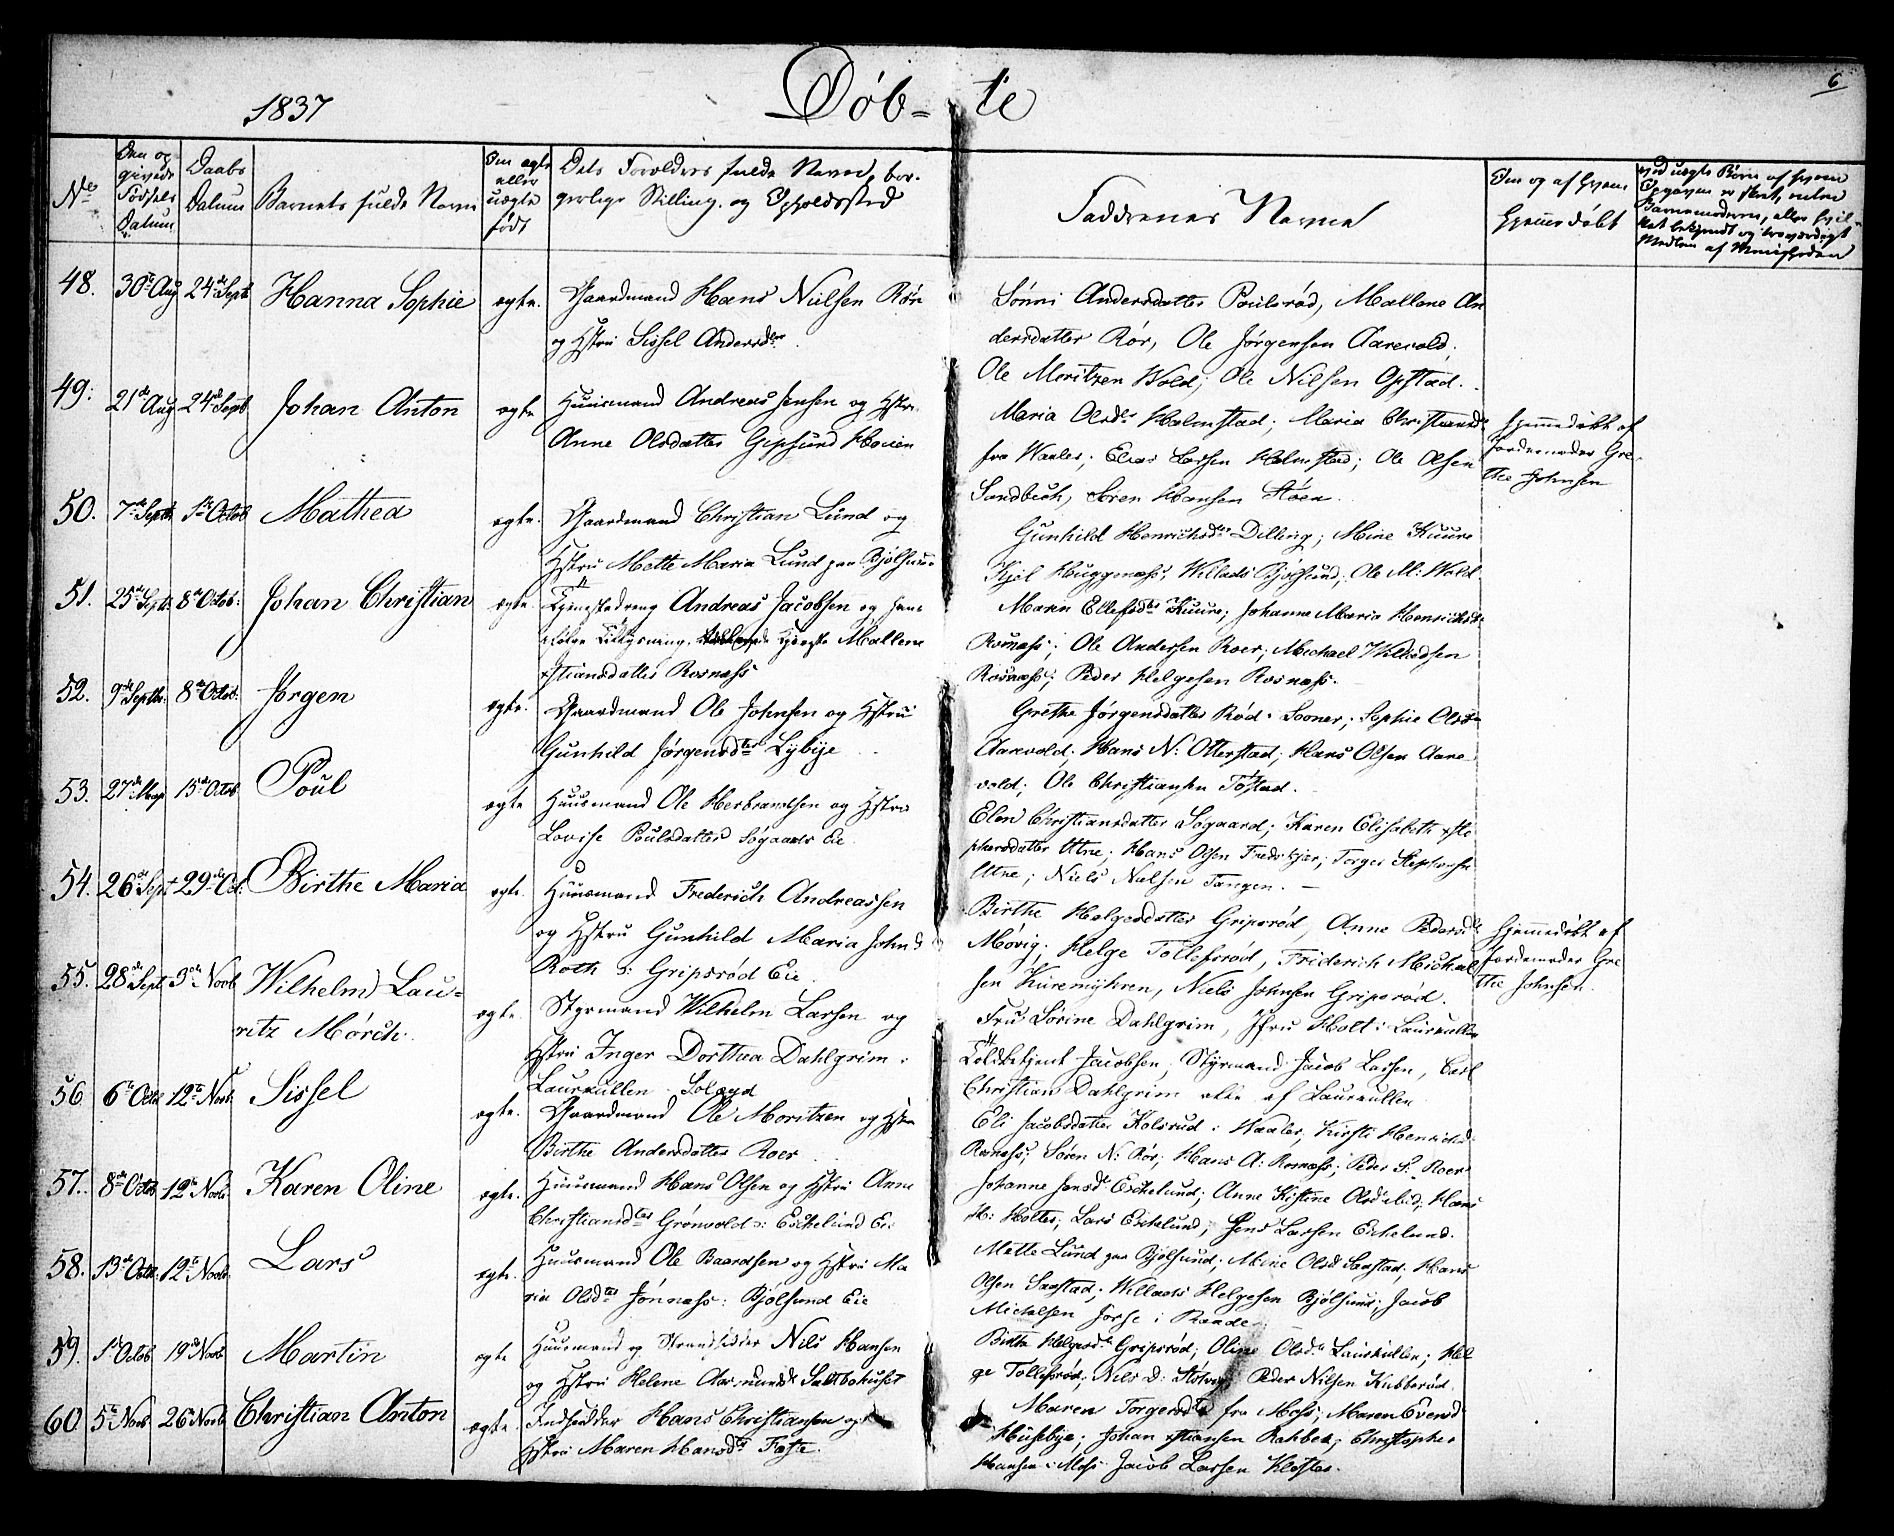 6
1837
Døb-te
No
Den op
givede
Fødsels
Datum
Daabs
Datum
Barnets fulde Navn
Om ægte
eller
uægte
født
Dets Forældres fulde Navne, bor-
gerlige Stilling, og Opholdssted
Faddrenes Navne
Om og af hvem
hjemmedøbt
ved uægte Børn af hvem
Opgaven er skeet, enten
Barnemoderen, eller hvil-
ket bekjendt og troværdigt
Medlem af Menigheden
48. 30te Aug 24de Septb Hanna Sophie ægte. Gaardmand Hans Nielsen Rør
og Hstru Sissel Andersdtr.
Sønni Andersdatter Poulsrød, Mallene An
dersdatter Rør, Ole Jørgensen Aarvold,
Ole Moritzen Wold; Ole Nilsen Opstad.
49. 21de Aug 24de Septb Johan Anton ægte Huusmand Andreas Jensen og Hstru
Anne Olsdatter Gipsund
Maria Olsdtr Holmstad; Maria Christiansdr
fra Waaler; Elias Larsen Holmstad; Ole Olsen
Sandbech, Søren Hansen Støen.
hjemmedøbt af
Jordemoder Gre-
the Johnsen
50. 7de Septb 1ste Octob Mathea ægte. Gaardmand Christian Lund og
Hstru Mette Maria Lund paa Bjølsund
Gunhild Henrichsdtr Dilling; Mine Kuure
Kjel Huggenæss, Willads Bjølsund, Ole M: Wold.
51. 25de Septb 8de Octob: Johan Christian ægte. Tjenestedreng Andreas Jacobsen og hans
Tjeneste Mallene
xstiansdatter Rosnæss
Maren Ellefsdtr Kuure; Johanne Maria Henrichsdr
Rosnæss; Ole Andersen Roer; Michael Willadsen
Rosnæss; Peder Helgesen Rosnæss.
52. 9de Septbr. 8de Octob: Jørgen ægte. Gaardmand Ole Johnsen og Hstru
Gunhild Jørgensdtr Lybye
Grethe Jørgensdatter Rød i Sooner; Sophie Olsdr
Aarvold; Hans N: Otterstad; Hans Olsen Aare
vold; Ole Christiansen Tofstad.
53. 27de 15de Octob Poul ægte Huusmand Ole Herbrandsen og Hstru
Lovise Poulsdatter Søgaards Eie
Elen Christiansdatter Søgaard; Karen Elisabeth Ste
phansdatter Utne; Hans Olsen Fredskjær; Torger Stephansen
Utne; Niels Nielsen Tangen.
54. 26de Sept 29de Oct: Birthe Maria ægte. Huusmand Frederich Andreassen
og Hstru Gunhild Maria Johnsd
Roth i Gripsrød Eie
Birthe Helgesdatter Gripsrød, Anne Pedersdr
Møvig; Helge Tollefsrød, Friderich Michel
sen Kuremyhren, Niels Johnsen Gripsrød.
hjemmedøbt af
Jordemoder Gre
the Johnsen.
55. 28de Sept 3de Novb Wilhelm Lau-
ritz Mørch. ægte. Styrmand Wilhelm Larsen og
Hstru Inger Dorthea Dahlgrim i
Laurkullen Soløyd
Fru Sørine Dahlgrim, Jfru Holt i Laurkullen
Toldbetjent Jacobsen, Styrmand Jacob Larsen, Carl
Christian Dahlgrim alle af Laurkullen
56 6te Octo 12te Novb. Sissel ægte. Gaardmand Ole Moritzen og Hstru
Birthe Andersdatter Roer
Eli Jacobsdatter Kolsrud i Waaler, Kirsti Henrichsd.
Rosnæss; Søren N: Rør; Hans A: Rosnæss; Peder S. Roer
57. 8de Octob 12te Novb. Karen Oline ægte. Huusmand Hans Olsen og Hstru Anne
Christiansdtr Grønvold i Eschelund Eie
Johanne Jensdr Eschelund; Anne Kistine Olsdr ibid; Hans
H: Holter; Lars Eschelund; Jens Larsen Eschelund.
58. 13de Octb. 12te Novb. Lars ægte. Huusmand Ole Baardsen og Hstru Ma
ria Olsdtr Jønnæss i Bjølsund Eie
Mette Lund paa Bjølsund; Mine Olsd Saxstad; Hans
Olsen Saxstad; Willads Helgesen Bjølsund; Jacob
Michelsen i Raade
59. 1ste Octob 19de Novb Martin ægte Huusmand og Strandsidder Nils Hansen
og Hstru Helene Saltbohuset
Birthe Helgesdr Gripsrød; Oline Olsdr Laurkullen; Hel
ge Tollefsrød; Nils D: Peder Nilsen Kubberød.
60 5te Novb 26de Novb Christian Anton ægte. Inderster Hans Christiansen og
Hstru Maren Hansdtr Faste.
Maren Torgersdtr fra Moss; Maren Evensd
Husebye; Johan xstiansen Rahbek; Christopher
Hansen i Moss Jacob Larsen Kloster.